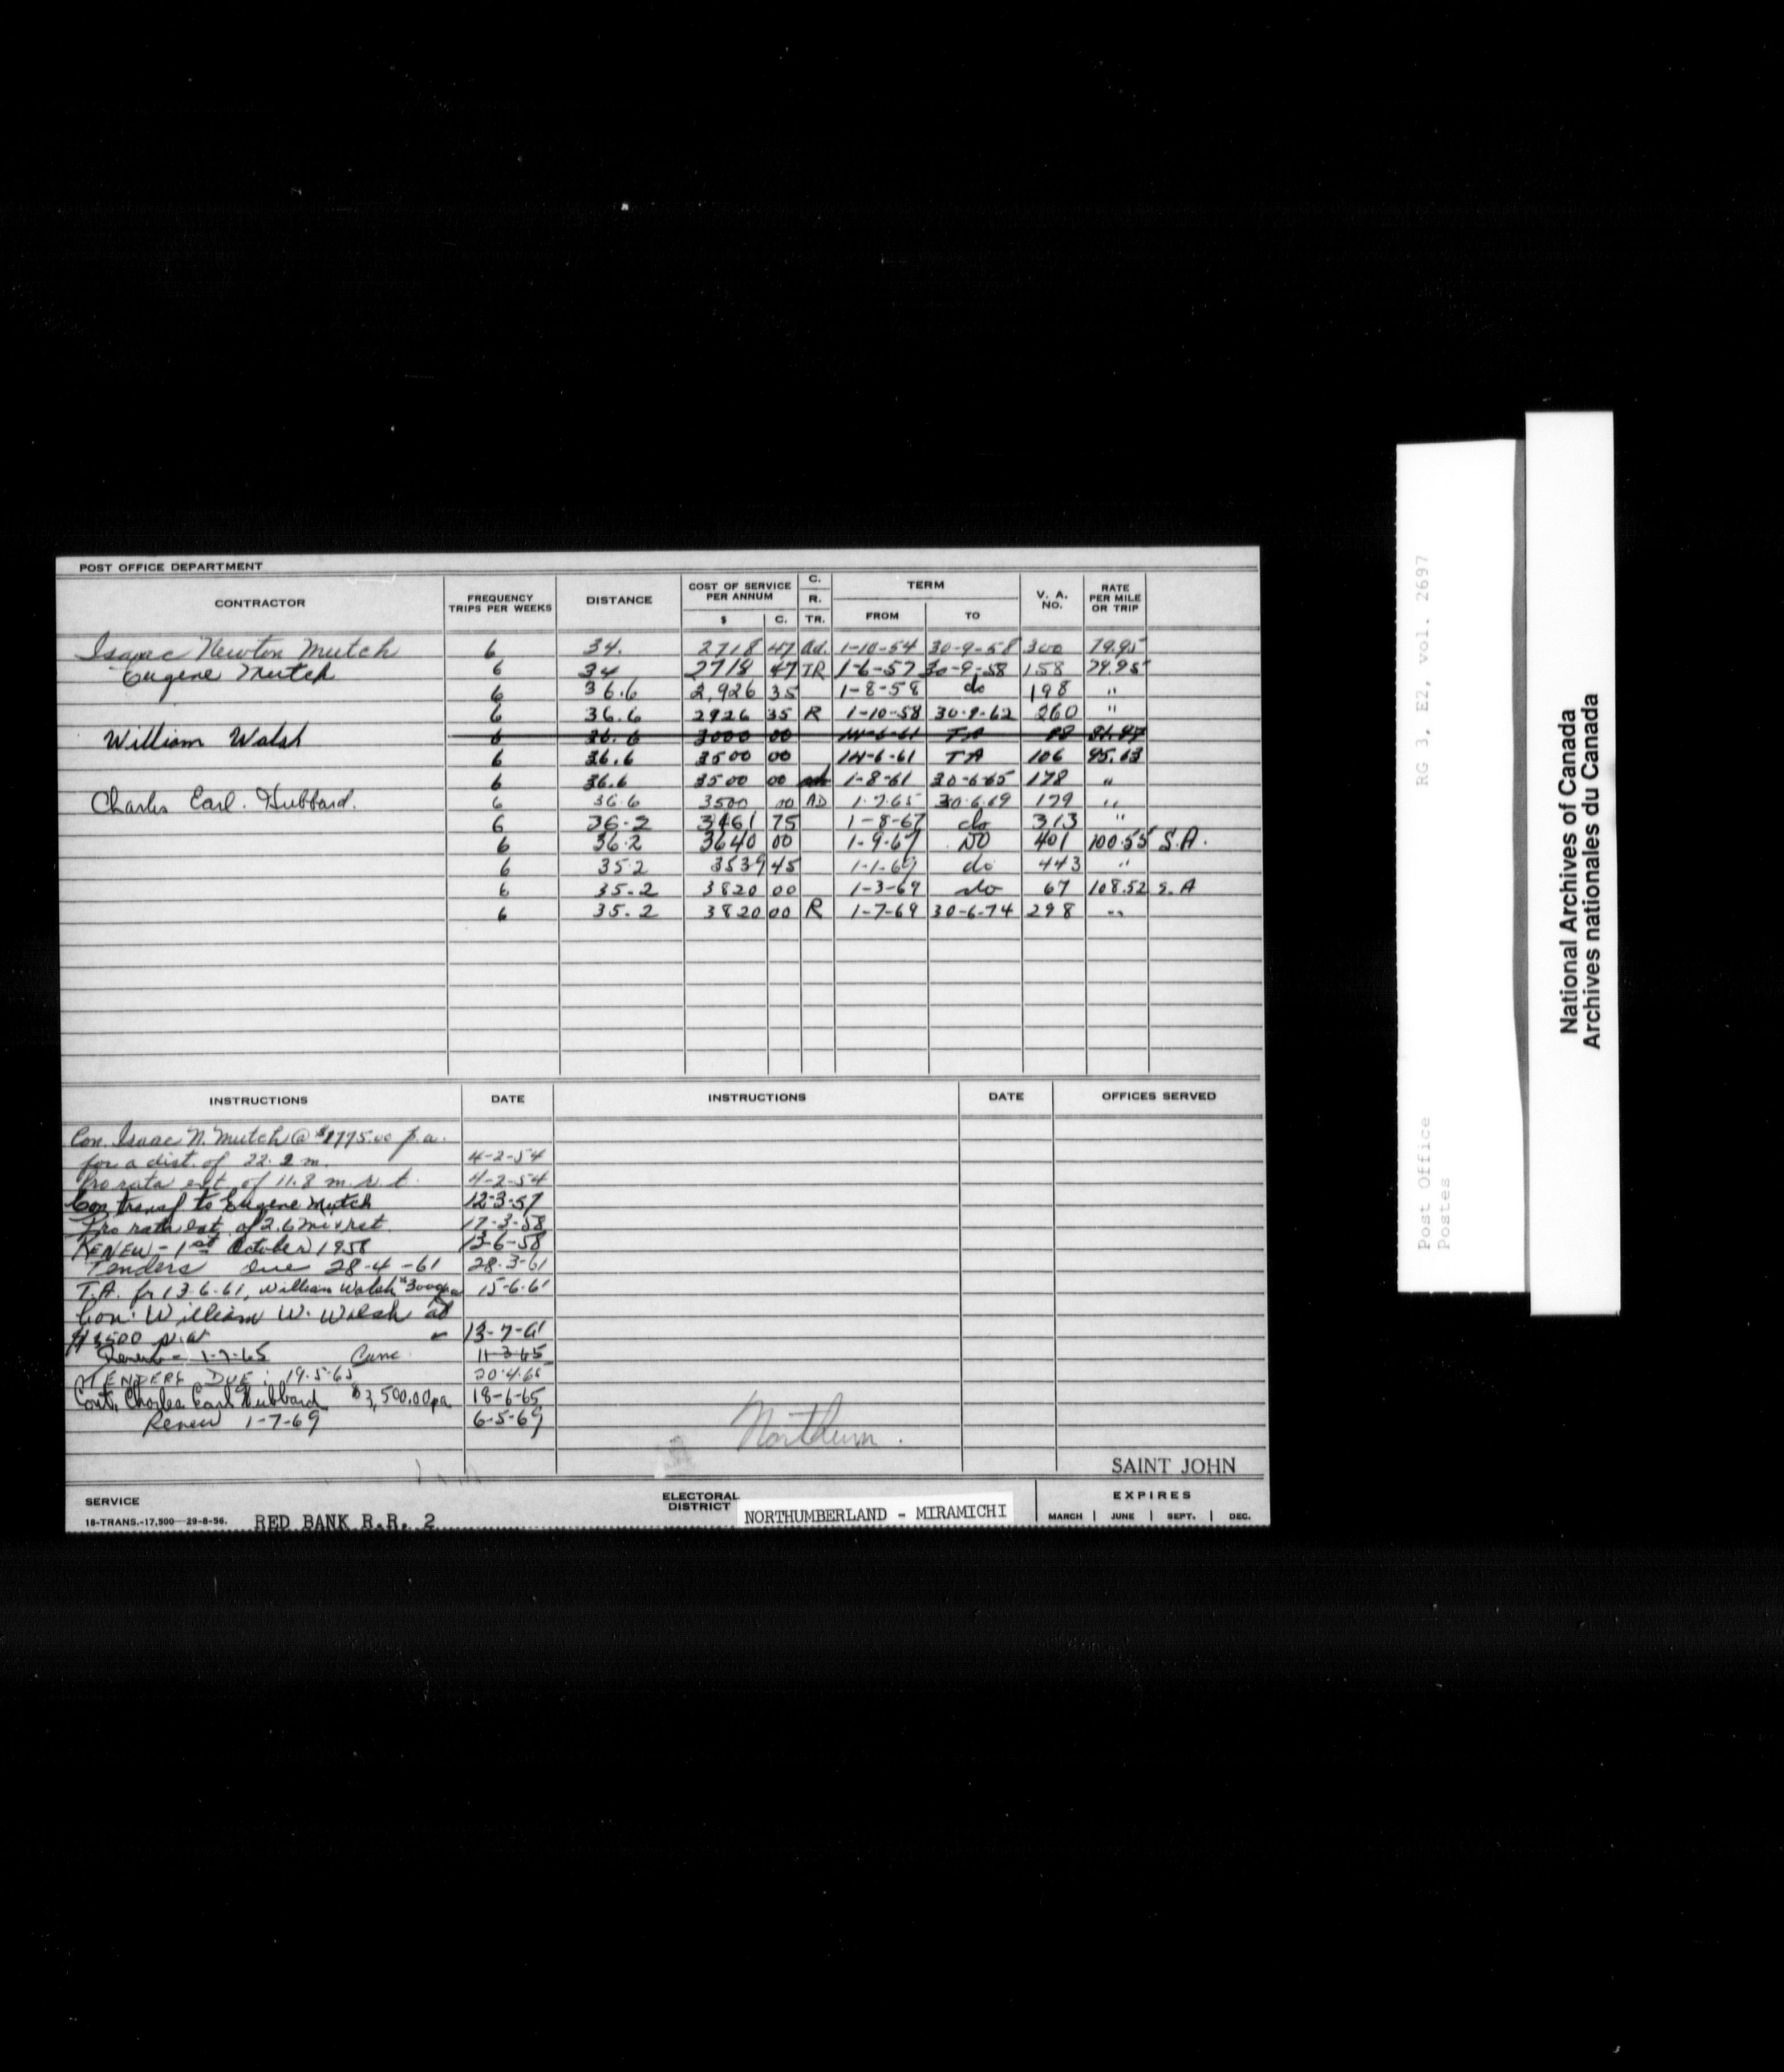 POST OFFICE DEPARTMENT
CONTRACTOR FREQUENCY TRIPS PER WEEKS DISTANCE COST OF SERVICE PER ANNUM $ C. C. R. TR. TERM FROM TO V. A. NO. RATE PER MILE OR TRIP
Isaac Newton Mutch 6 34. 2718 47 Ad. 1-10-54 30-9-58 300 79.95
Eugene Mutch 6 34 2718 47 TR 1-6-57 30-9-58 158 79.95
6 36.6 2,926 35 1-8-58 do 198 "
6 36.6 2926 35 R 1-10-58 30-9-62 260 "
William Walsh 6 36.6 3000 00 14-6-61 TA 81.97
6 36.6 3500 00 14-6-61 TA 106 95.63
6 36.6 3500 00 1-8-61 30-6-65 178 "
Charles Earl. Hubbard. 6 36.6 3500 00 AD 1-7-65 30-6-69 179 "
6 36-2 3461 75 1-8-67 do 313 "
6 36.2 3640 00 1-9-67 DO 401 100.55 S.A.
6 35.2 3539 45 1-1-69 do 443 "
6 35-2 3820 00 1-3-69 do 67 108.52 S.A
6 35-2 3820 00 R 1-7-69 30-6-74 298 "
INSTRUCTIONS DATE INSTRUCTIONS DATE OFFICES SERVED
Con. Isaac N. Mutch @ $1775.00 p.a.
for a dist. of 22.2 m. 4-2-54
Pro rata ext of 11.8 m. r. t. 4-2-54
Con transf to Eugene Mutch 12-3-57
Pro rata ext. of 2.6 mi & ret 17-3-58
RENEW - 1st October 1958 13-6-58
Tenders due 28-4-61 28-3-61
T.A. fr 13.6.61, William Walsh $3000 pa 15-6-61
Con: William W. Walsh at
$3500 p.a 13-7-61
Renew - 1-7-65 Canc. 11-3-65
TENDERS DUE: 19.5.65 20.4.65
Cont. Charles Earl Hubbard $3,500.00 pa 18-6-65
Renew 1-7-69 6-5-69
Northum.
SAINT JOHN
SERVICE
18-TRANS.-17,500—29-8-56. RED BANK R.R. 2
ELECTORAL DISTRICT NORTHUMBERLAND - MIRAMICHI
EXPIRES
MARCH | JUNE | SEPT. | DEC.
RG 3, E2, vol. 2697
Post Office
Postes
National Archives of Canada
Archives nationales du Canada